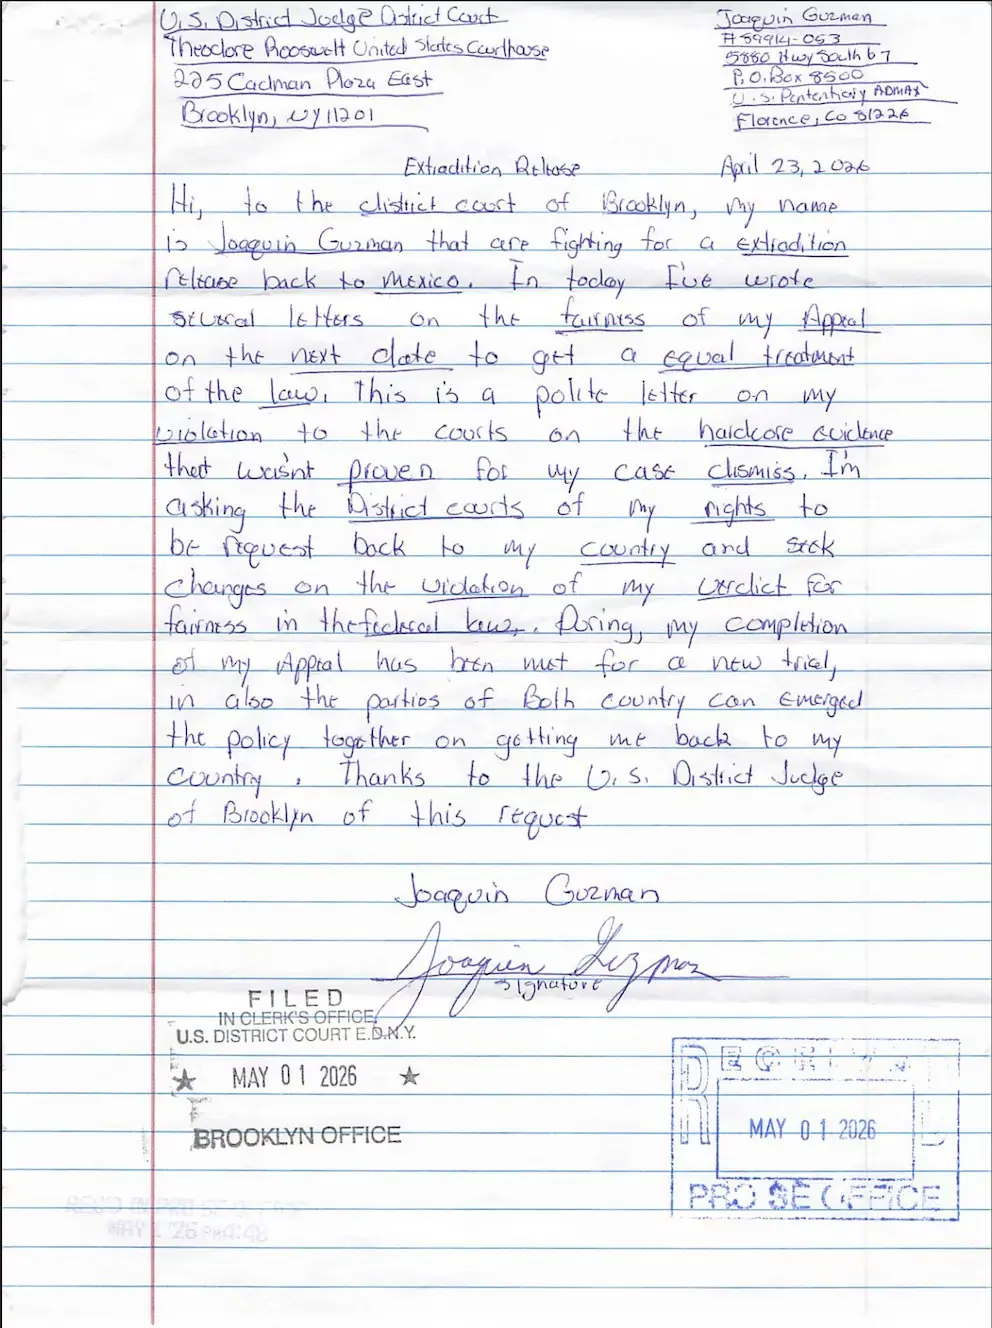 U.S. District Judge District Court
Theodore Roosevelt United States Courthouse
225 Cadman Plaza East
Brooklyn, NY 11201
Joaquin Guzman
# 89914-053
5880 Hwy South 67
P.O. Box 8500
U.S. Pentентiary ADMAX
Florence, Co 81226
Extradition Release
April 23, 2026
Hi, to the district court of Brooklyn, my name
is Joaquin Guzman that are fighting for a extradition
release back to Mexico. In today I've wrote
several letters on the fairness of my Appeal
on the next date to get a equal treatment
of the law. This is a polite letter on my
violation to the courts on the hardcore evidence
that wasn't proven for my case dismiss. I'm
asking the District courts of my rights to
be request back to my country and seek
changes on the violation of my verdict for
fairness in the federal law. During, my completion
of my Appeal has been met for a new trial,
in also the parties of Both country can emerged
the policy together on getting me back to my
country. Thanks to the U.S. District Judge
of Brooklyn of this request
Joaquin Guzman
Joaquin Guzman
signature
FILED
IN CLERK'S OFFICE
U.S. DISTRICT COURT E.D.N.Y.
★ MAY 01 2026 ★
BROOKLYN OFFICE
RECEIVED
MAY 01 2026
PRO SE OFFICE